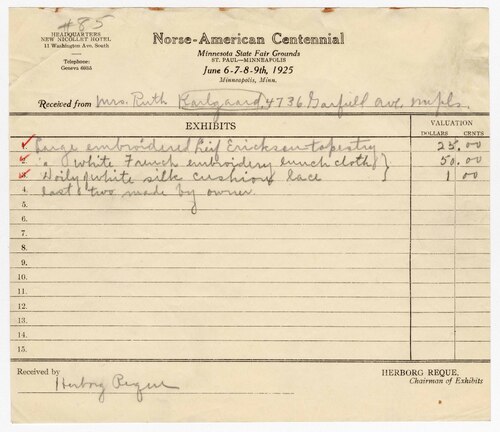 #85
HEADQUARTERS
NEW NICOLLET HOTEL
11 Washington Ave. South
Telephone:
Geneva 6855
Norse-American Centennial
Minnesota State Fair Grounds
ST. PAUL—MINNEAPOLIS
June 6-7-8-9th, 1925
Minneapolis, Minn.
Received from Mrs. Ruth Karlgaard, 4736 Garfield Ave. Mpls.
EXHIBITS
VALUATION
DOLLARS CENTS
Large embroidered Leif Ericksen tapestry 25.00
White French embroidery lunch cloth } 50.00
Doily & white silk cushion lace } 1 00
4. Last two made by owner.
5.
6.
7.
8.
9.
10.
11.
12.
13.
14.
15.
Received by Herborg Reque
HERBORG REQUE,
Chairman of Exhibits